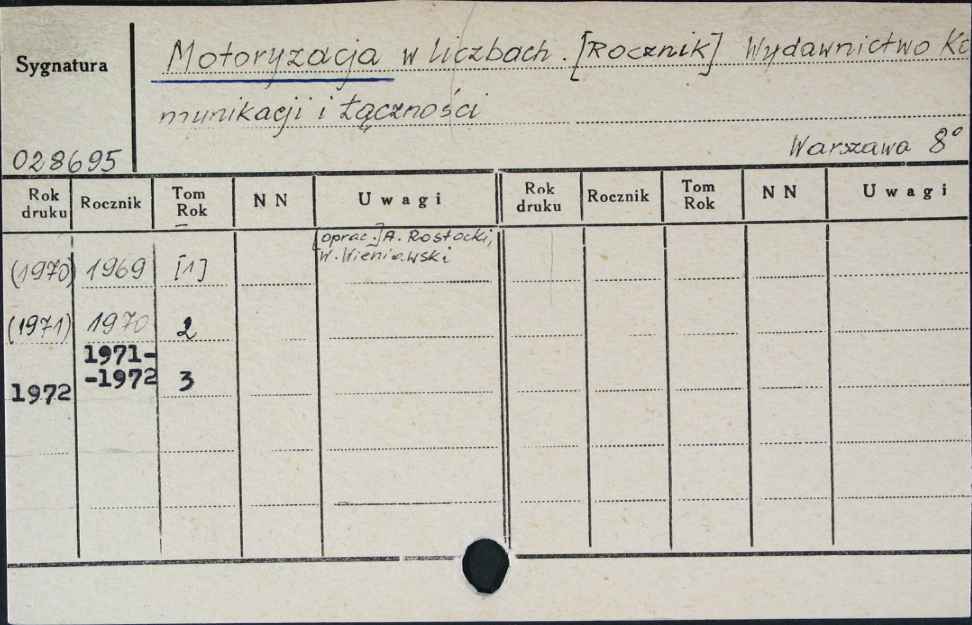 Sygnatura
Motoryzacja w liczbach. [Rocznik] Wydawnictwo Ko
munikacji i Łączności
Warszawa 8°
028695
Rok druku Rocznik Tom Rok NN Uwagi Rok druku Rocznik Tom Rok NN Uwagi
[oprac.] A. Rostocki,
W. Wieniawski
(1970) 1969 [1]
(1971) 1970 2
1971-
-1972 3
1972